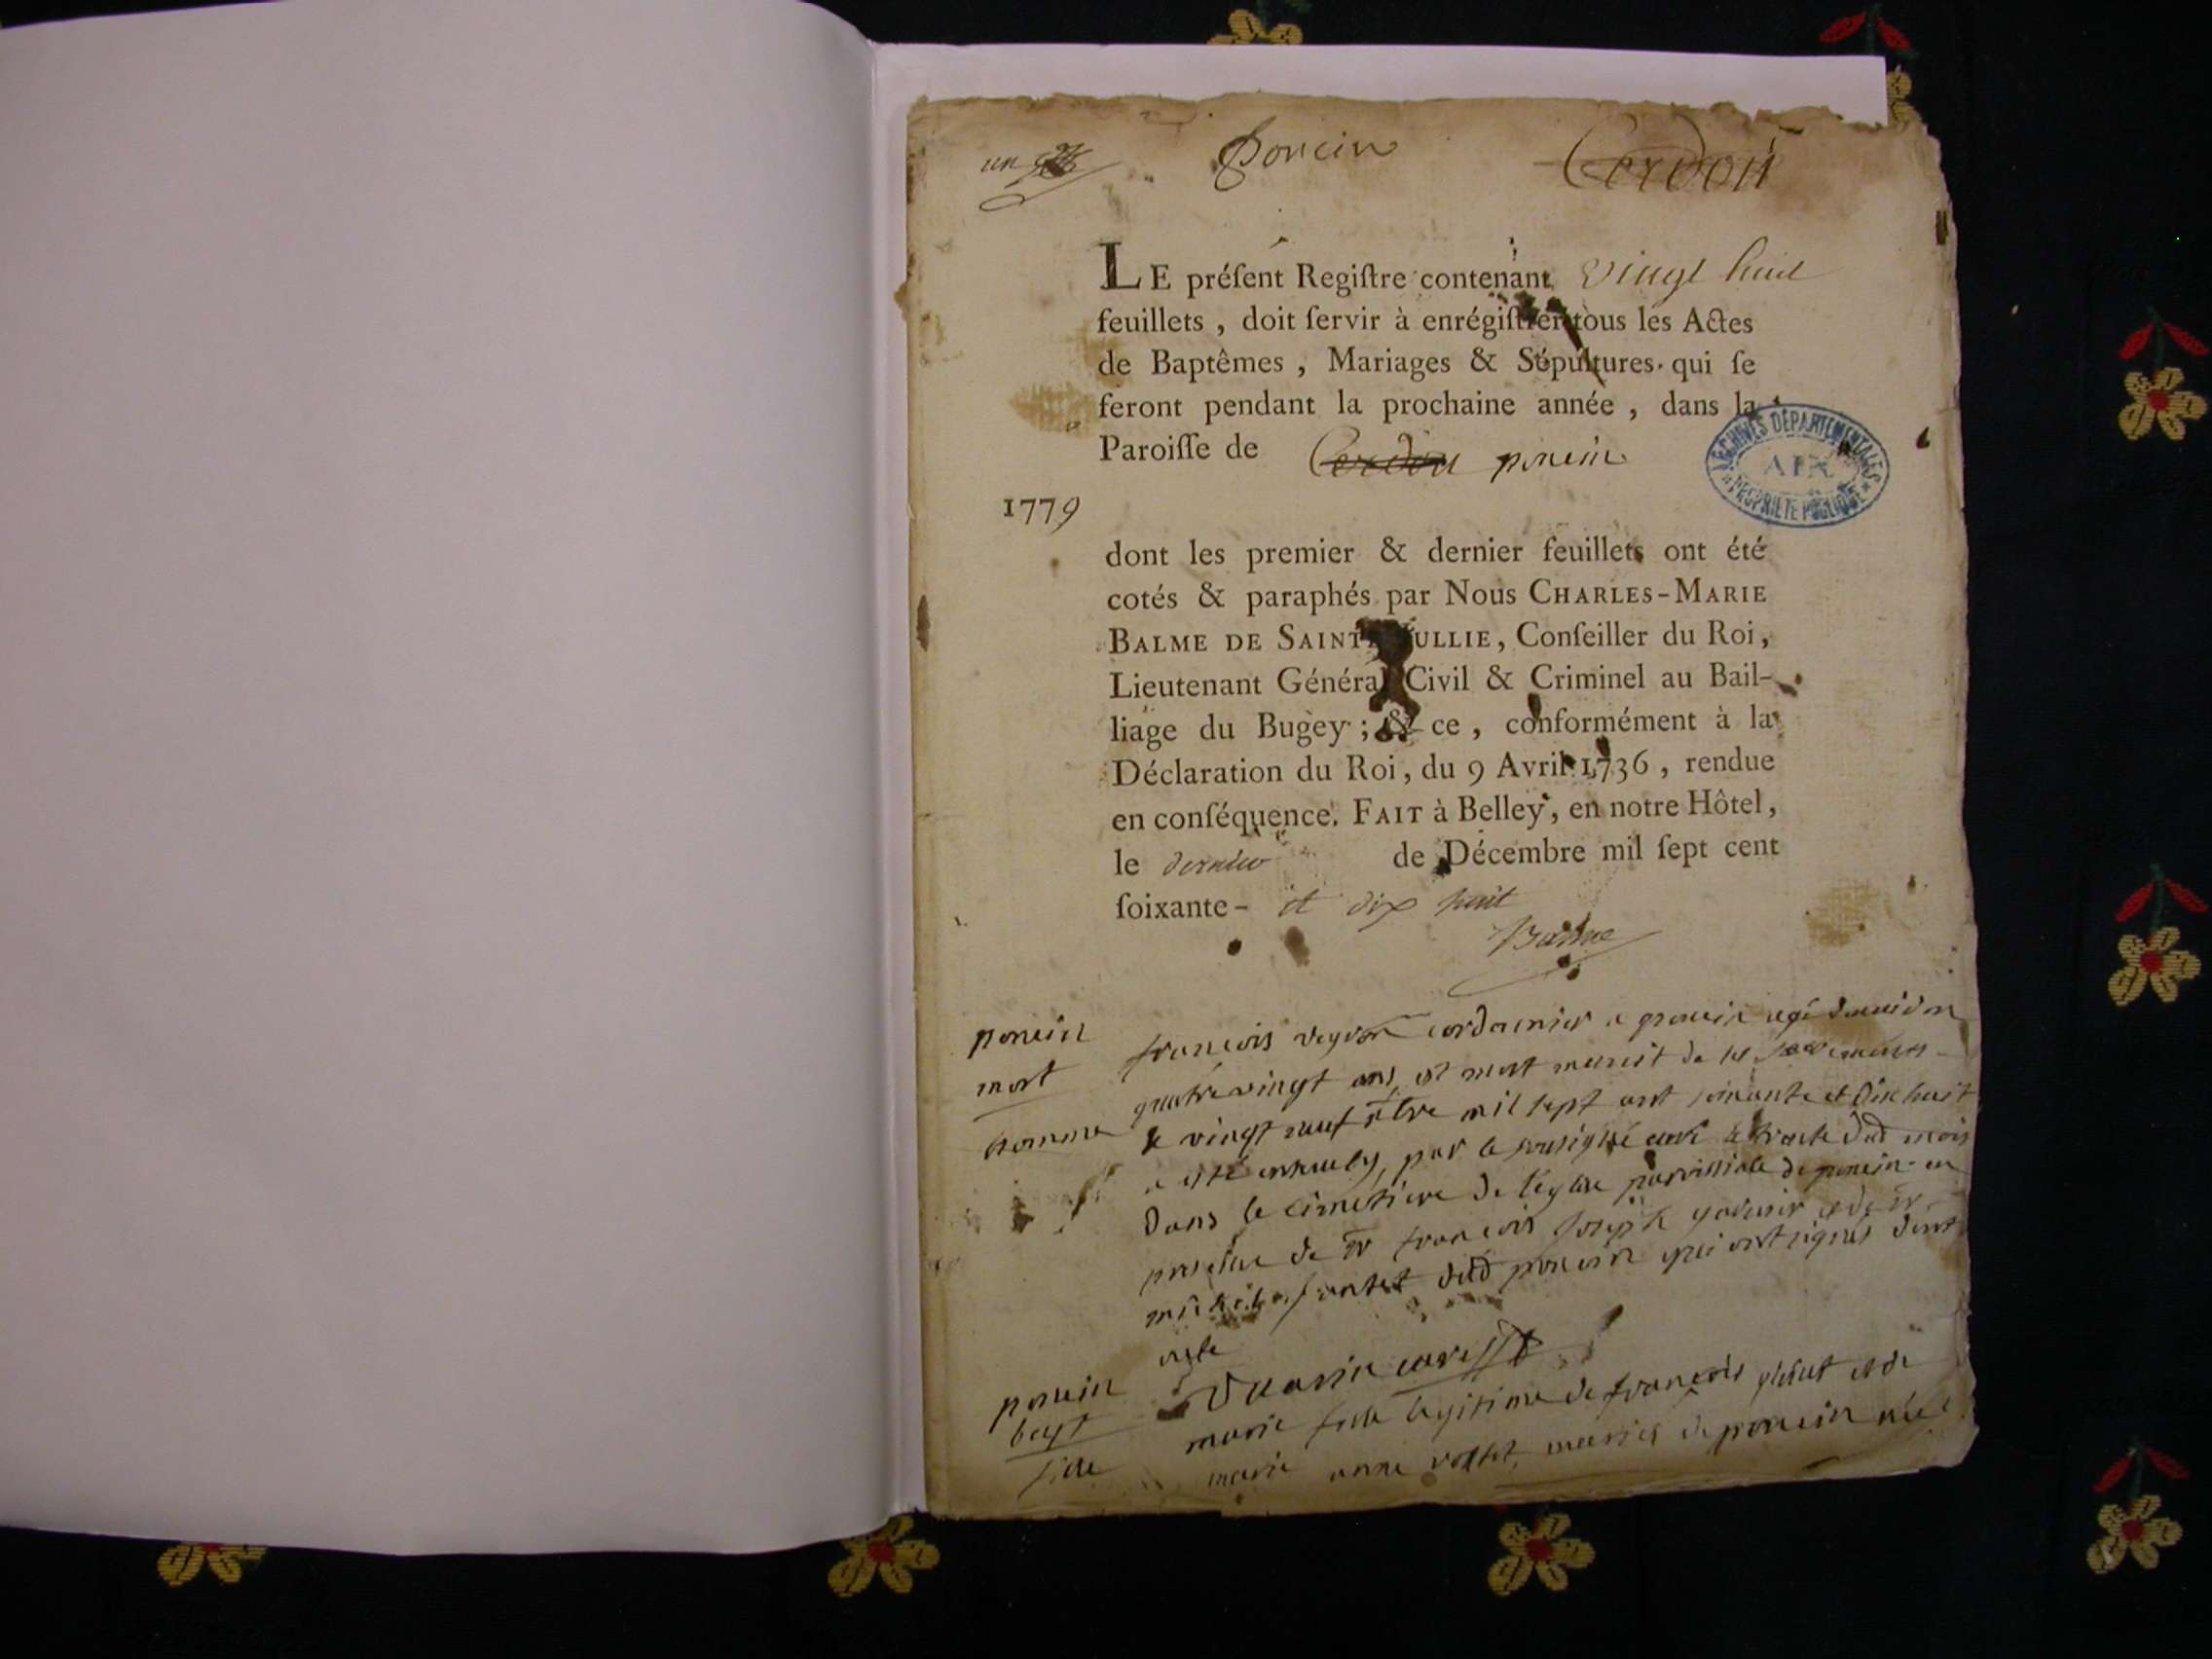 un
Poncin
Cerdon
LE préſent Regiſtre contenant vingt huit
feuillets , doit ſervir à enrégiſtrer tous les Actes
de Baptêmes , Mariages & Sépultures qui ſe
feront pendant la prochaine année , dans la
Paroiſſe de Cerdon poncin
ARCHIVES DÉPARTEMENTALES
AIN
PROPRIÉTÉ PUBLIQUE
1779
dont les premier & dernier feuillets ont été
cotés & paraphés par Nous CHARLES-MARIE
BALME DE SAINTE JULLIE, Conſeiller du Roi,
Lieutenant Général Civil & Criminel au Bail-
liage du Bugey ; & ce , conformément à la
Déclaration du Roi, du 9 Avril 1736 , rendue
en conſéquence. FAIT à Belley, en notre Hôtel,
le dernier de Décembre mil ſept cent
ſoixante- et dix huit
Balme
poncin
mort
homme
francois cordonnier a poncin agé denviron
quatrevingt ans est mort muni de ses
le vingt neuf mil sept cent soixante et dix huit
a esté par le soussigné curé le trente dud mois
dans le cimetiere de l'eglise parroissiale de poncin en
presence de sr francois joseph et de sr
dud poncin qui ont signés dont
acte
curé
poncin
bapt
fille
marie fille legitime de francois et de
marie anne mariés de poncin née